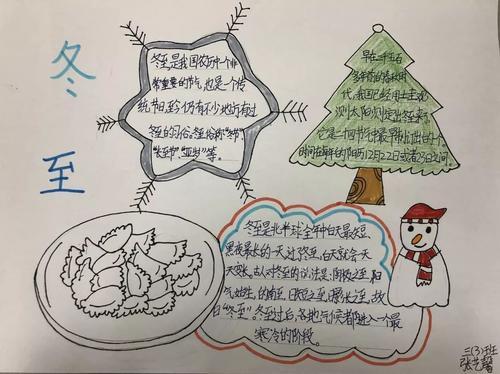 冬
至
冬至是我国农历中一个非
常重要的节气,也是一个传
统节日,至今仍有不少地方有过
冬至的习俗。冬至俗称"冬节"、
"长至节"、"亚岁"等。
早在二千五百
多年前的春秋时
代,我国已经用土圭观
测太阳测定出冬至来了,
它是二十四节气中最早制订出的一个。
时间在每年的阳历12月22日或者23日之间。
冬至是北半球全年中白天最短、
黑夜最长的一天,过了冬至,白天就会一天
天变长。古人对冬至的说法是:阴极之至,阳
气始生,日南至,日短之至,日影长之至,故
曰"冬至"。冬至过后,各地气候都进入一个最
寒冷的阶段。
三(3)班
张艺馨